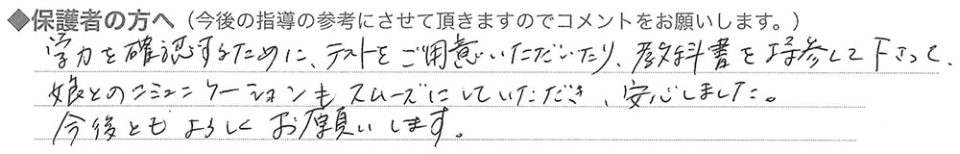 ◆保護者の方へ（今後の指導の参考にさせて頂きますのでコメントをお願いします。）
学力を確認するために、テストをご用意いただいたり、教科書を持参して下さって、
娘とのコミュニケーションもスムーズにしていただき、安心しました。
今後ともよろしくお願いします。